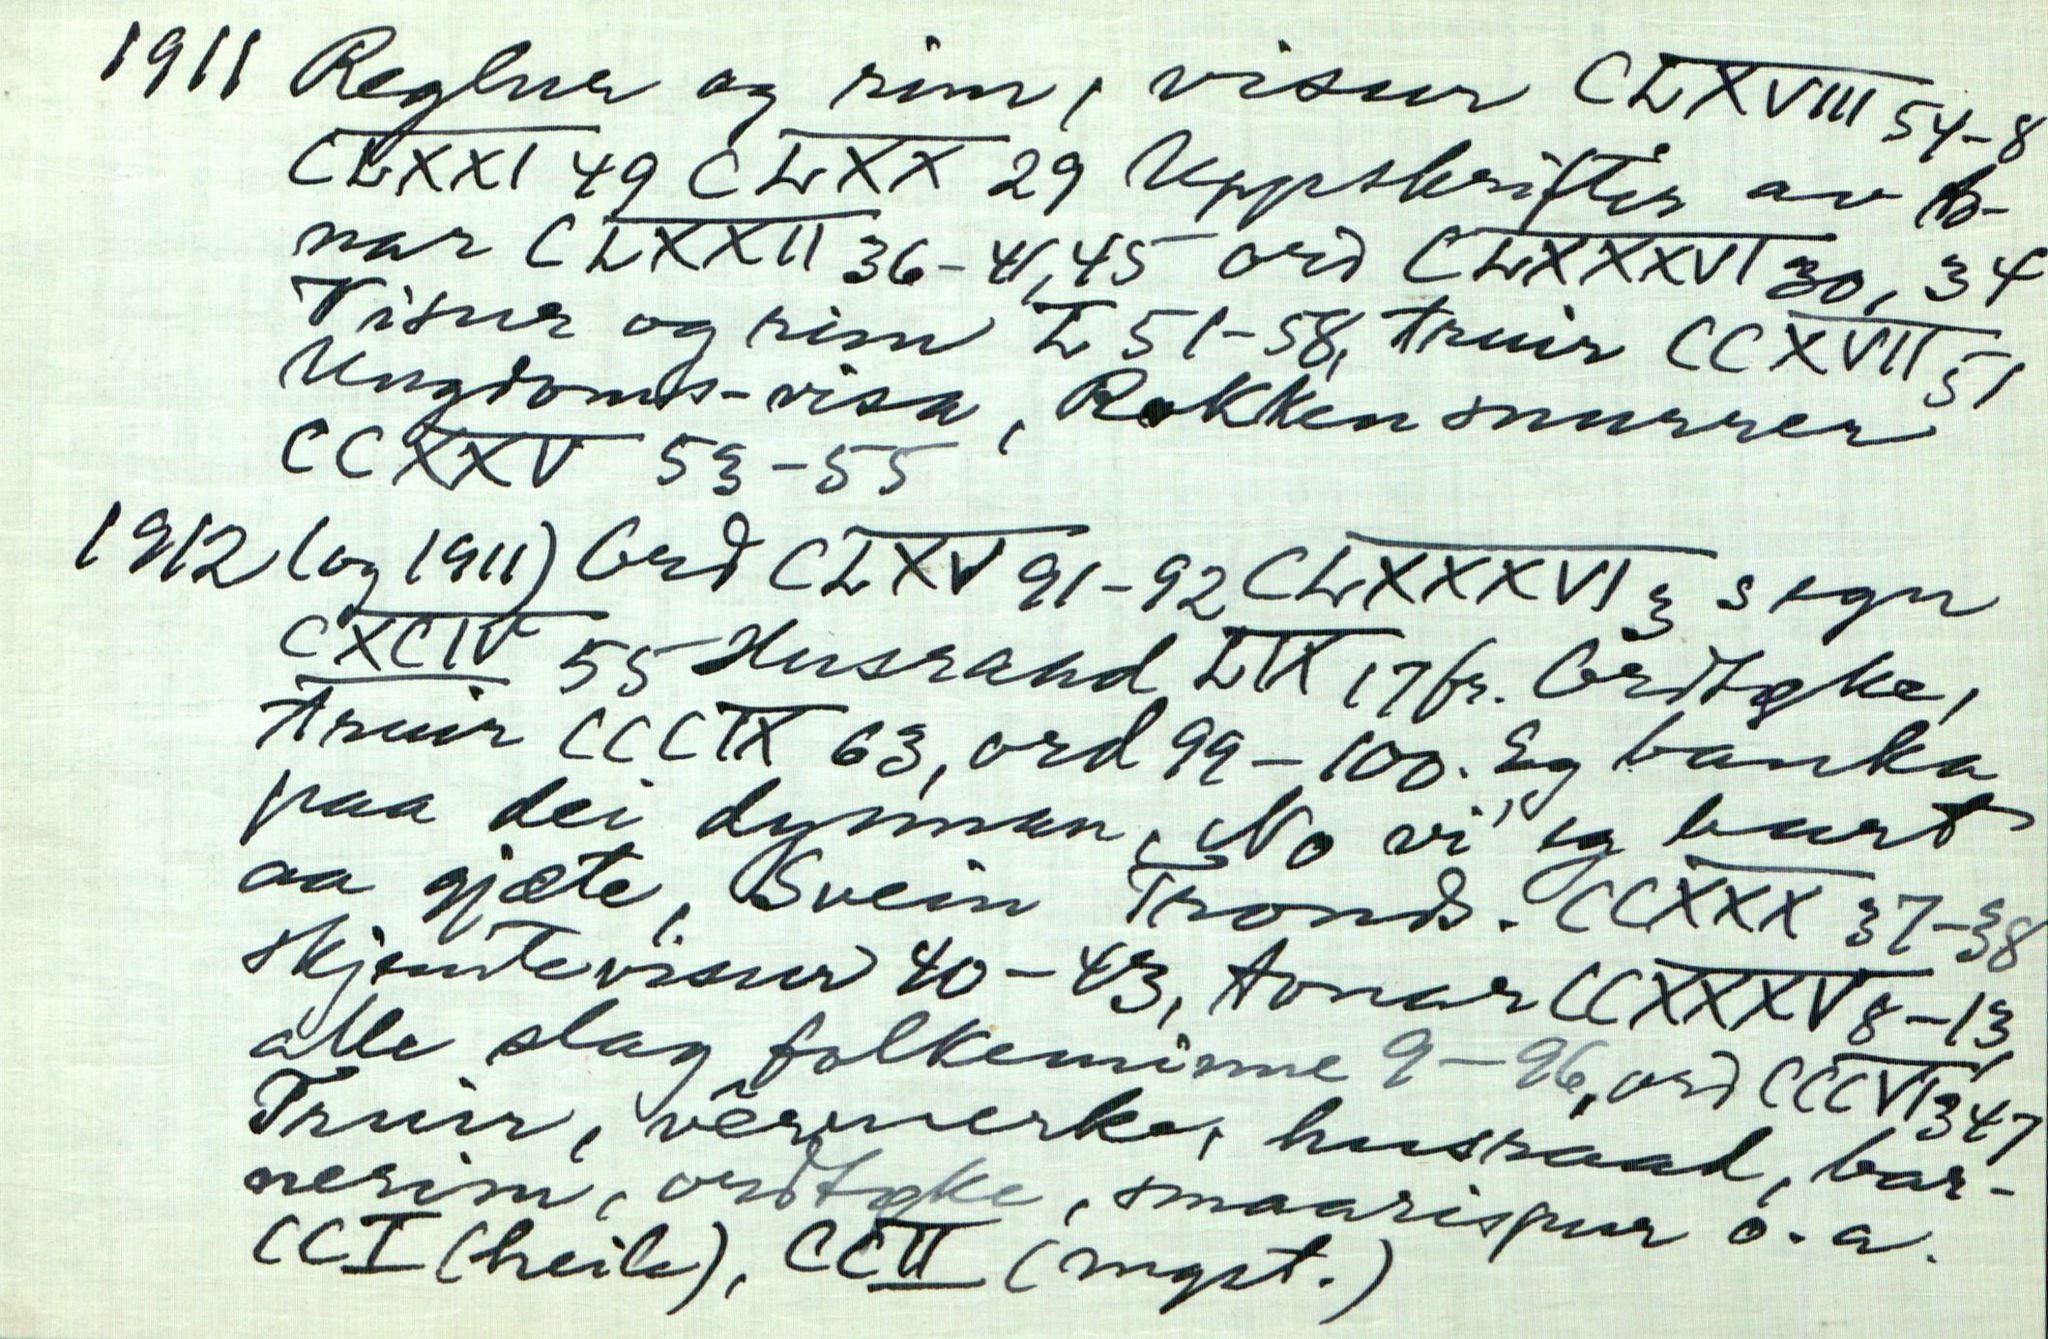 1911 Reglur og rim, visur CLXVIII 54-8
CLXXI 49 CLXX 29 Uppskrifter av to-
nar CLXXII 36-41,45 ord CLXXXVI 30, 34
Visur og rim L 51-58, truir CCXVII 51
Ungdoms-visa, Rokken snurrer
CCXXV 53-55
1912 (og 1911) Ord CLXV 91-92 CLXXXVI 3 segn
CXCIV 55 Husraad LIX 17 fr. Ordtøke,
truir CCCIX 63, ord 99-100. Eg banka
paa dei dynnan, No vi' eg burt
aa gjæte, Svein Tronds. CCXXX 37-38
skjemtevisur 40-43, tonar CCXXXV 8-13,
alle slag folkeminne 9-96, ord CCCVI 347
Truir, vêrmerke, husraad, bar-
nerim, ordtøke, smaarispur o.a.
CCI (heile), CCII (mgst.)